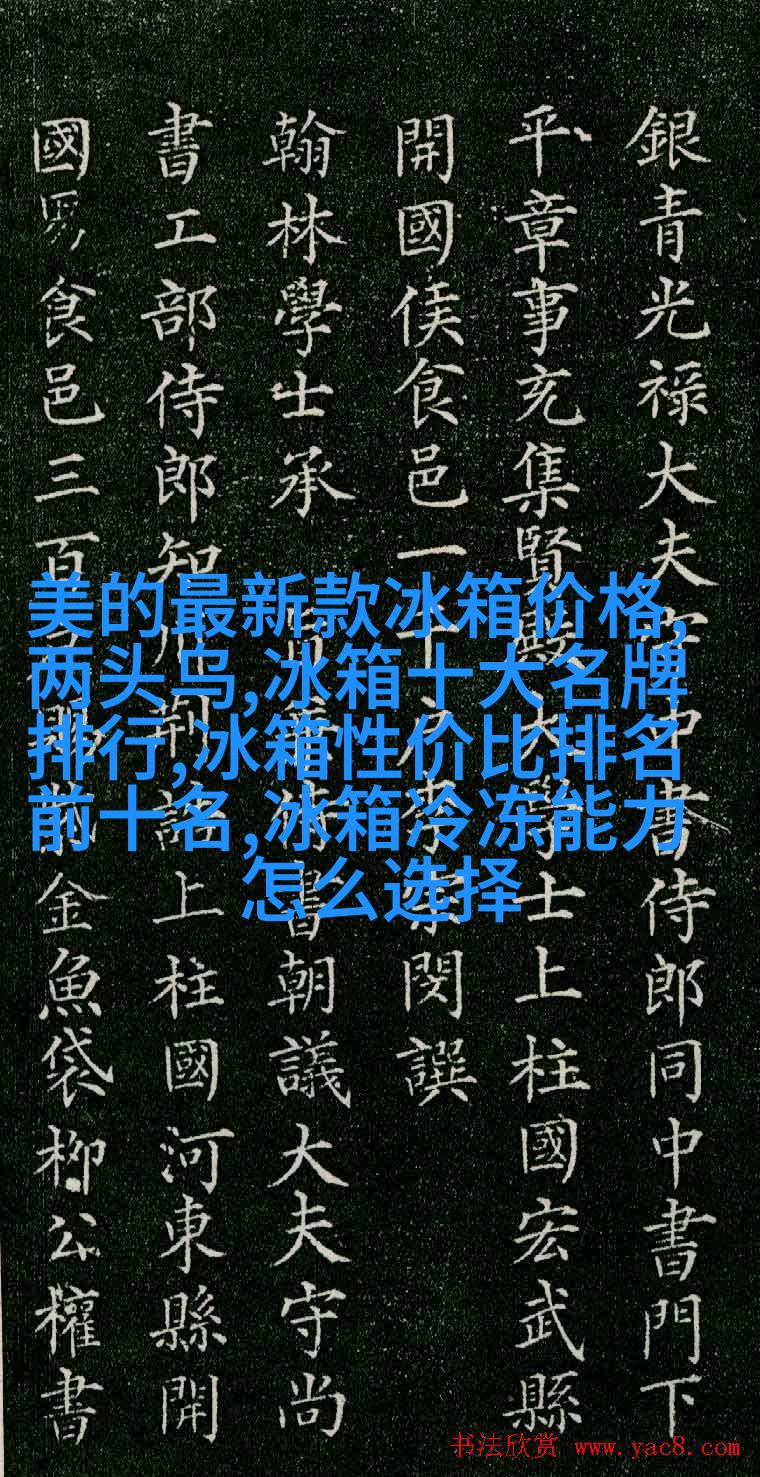 銀青光禄大夫守中書侍郎同中書門下
平章事充集賢殿大學士上柱國宏武縣
開國侯食邑一千戶李宗閔譔
翰林學士承旨兼侍書朝議大夫守尚
書工部侍郎知誥上柱國河東縣開
國男食邑三百金魚袋柳公權書
美的最新款冰箱价格,
两头乌,冰箱十大名牌
排行,冰箱性价比排名
前十名,冰箱冷冻能力
怎么选择
书法欣赏 www.yac8.com